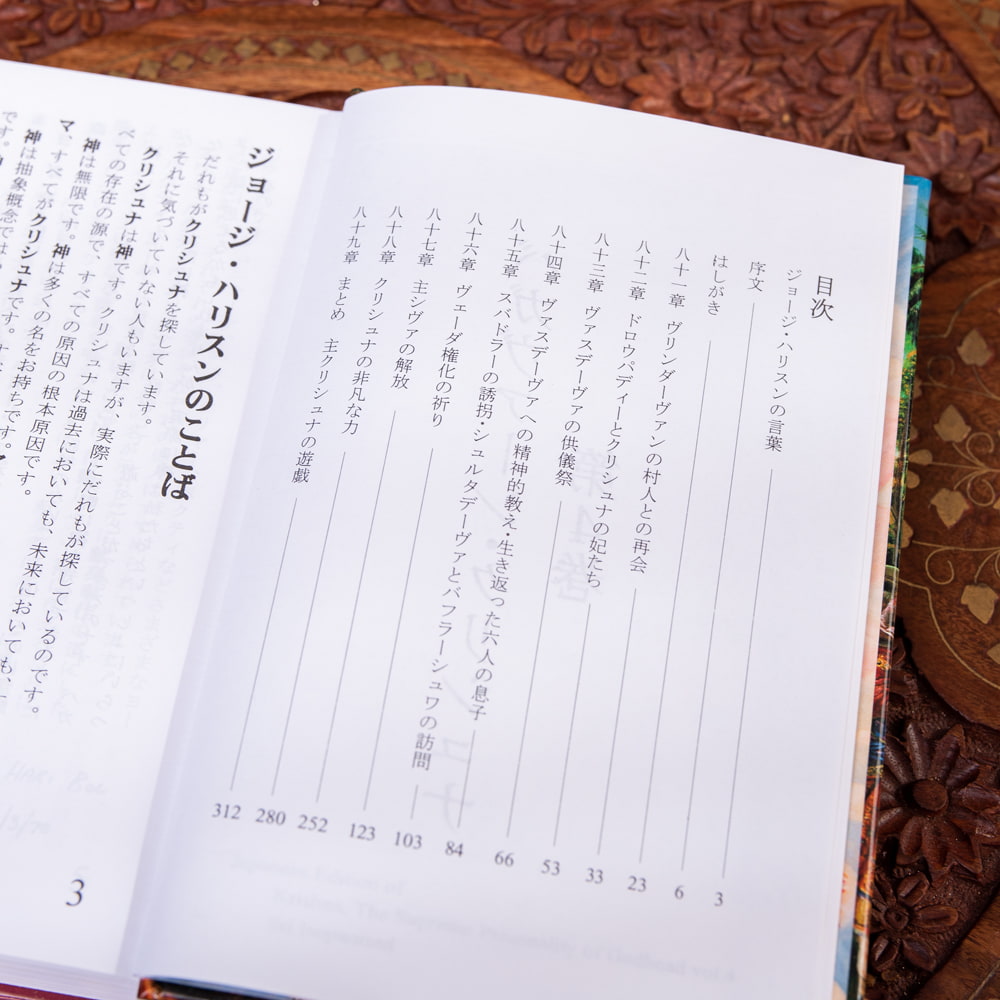 目次
ジョージ・ハリスンの言葉 3
序文 6
はしがき 23
八十一章 ヴリンダーヴァンの村人との再会 33
八十二章 ドロウパディーとクリシュナの妃たち 53
八十三章 ヴァスデーヴァの供儀祭 66
八十四章 ヴァスデーヴァへの精神的教え・生き返った六人の息子 84
八十五章 スバドラーの誘拐・シュルタデーヴァとバフラーシュワの訪問 103
八十六章 ヴェーダ権化の祈り 123
八十七章 主シヴァの解放 252
八十八章 クリシュナの非凡な力 280
八十九章 まとめ 主クリシュナの遊戯 312
ジョージ・ハリスンのことば
だれもがクリシュナを探しています。
それに気づいていない人もいますが、実際にだれもが探しているのです。
クリシュナは神です。クリシュナは過去においても、未来においても、
べての存在の源で、すべての原因の根本原因です。
神は無限です。神は多くの名をお持ちです。
マ、すべてがクリシュナです。
神は抽象概念では
です。
3